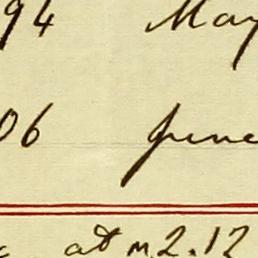 94 May
06 June
at m2.12